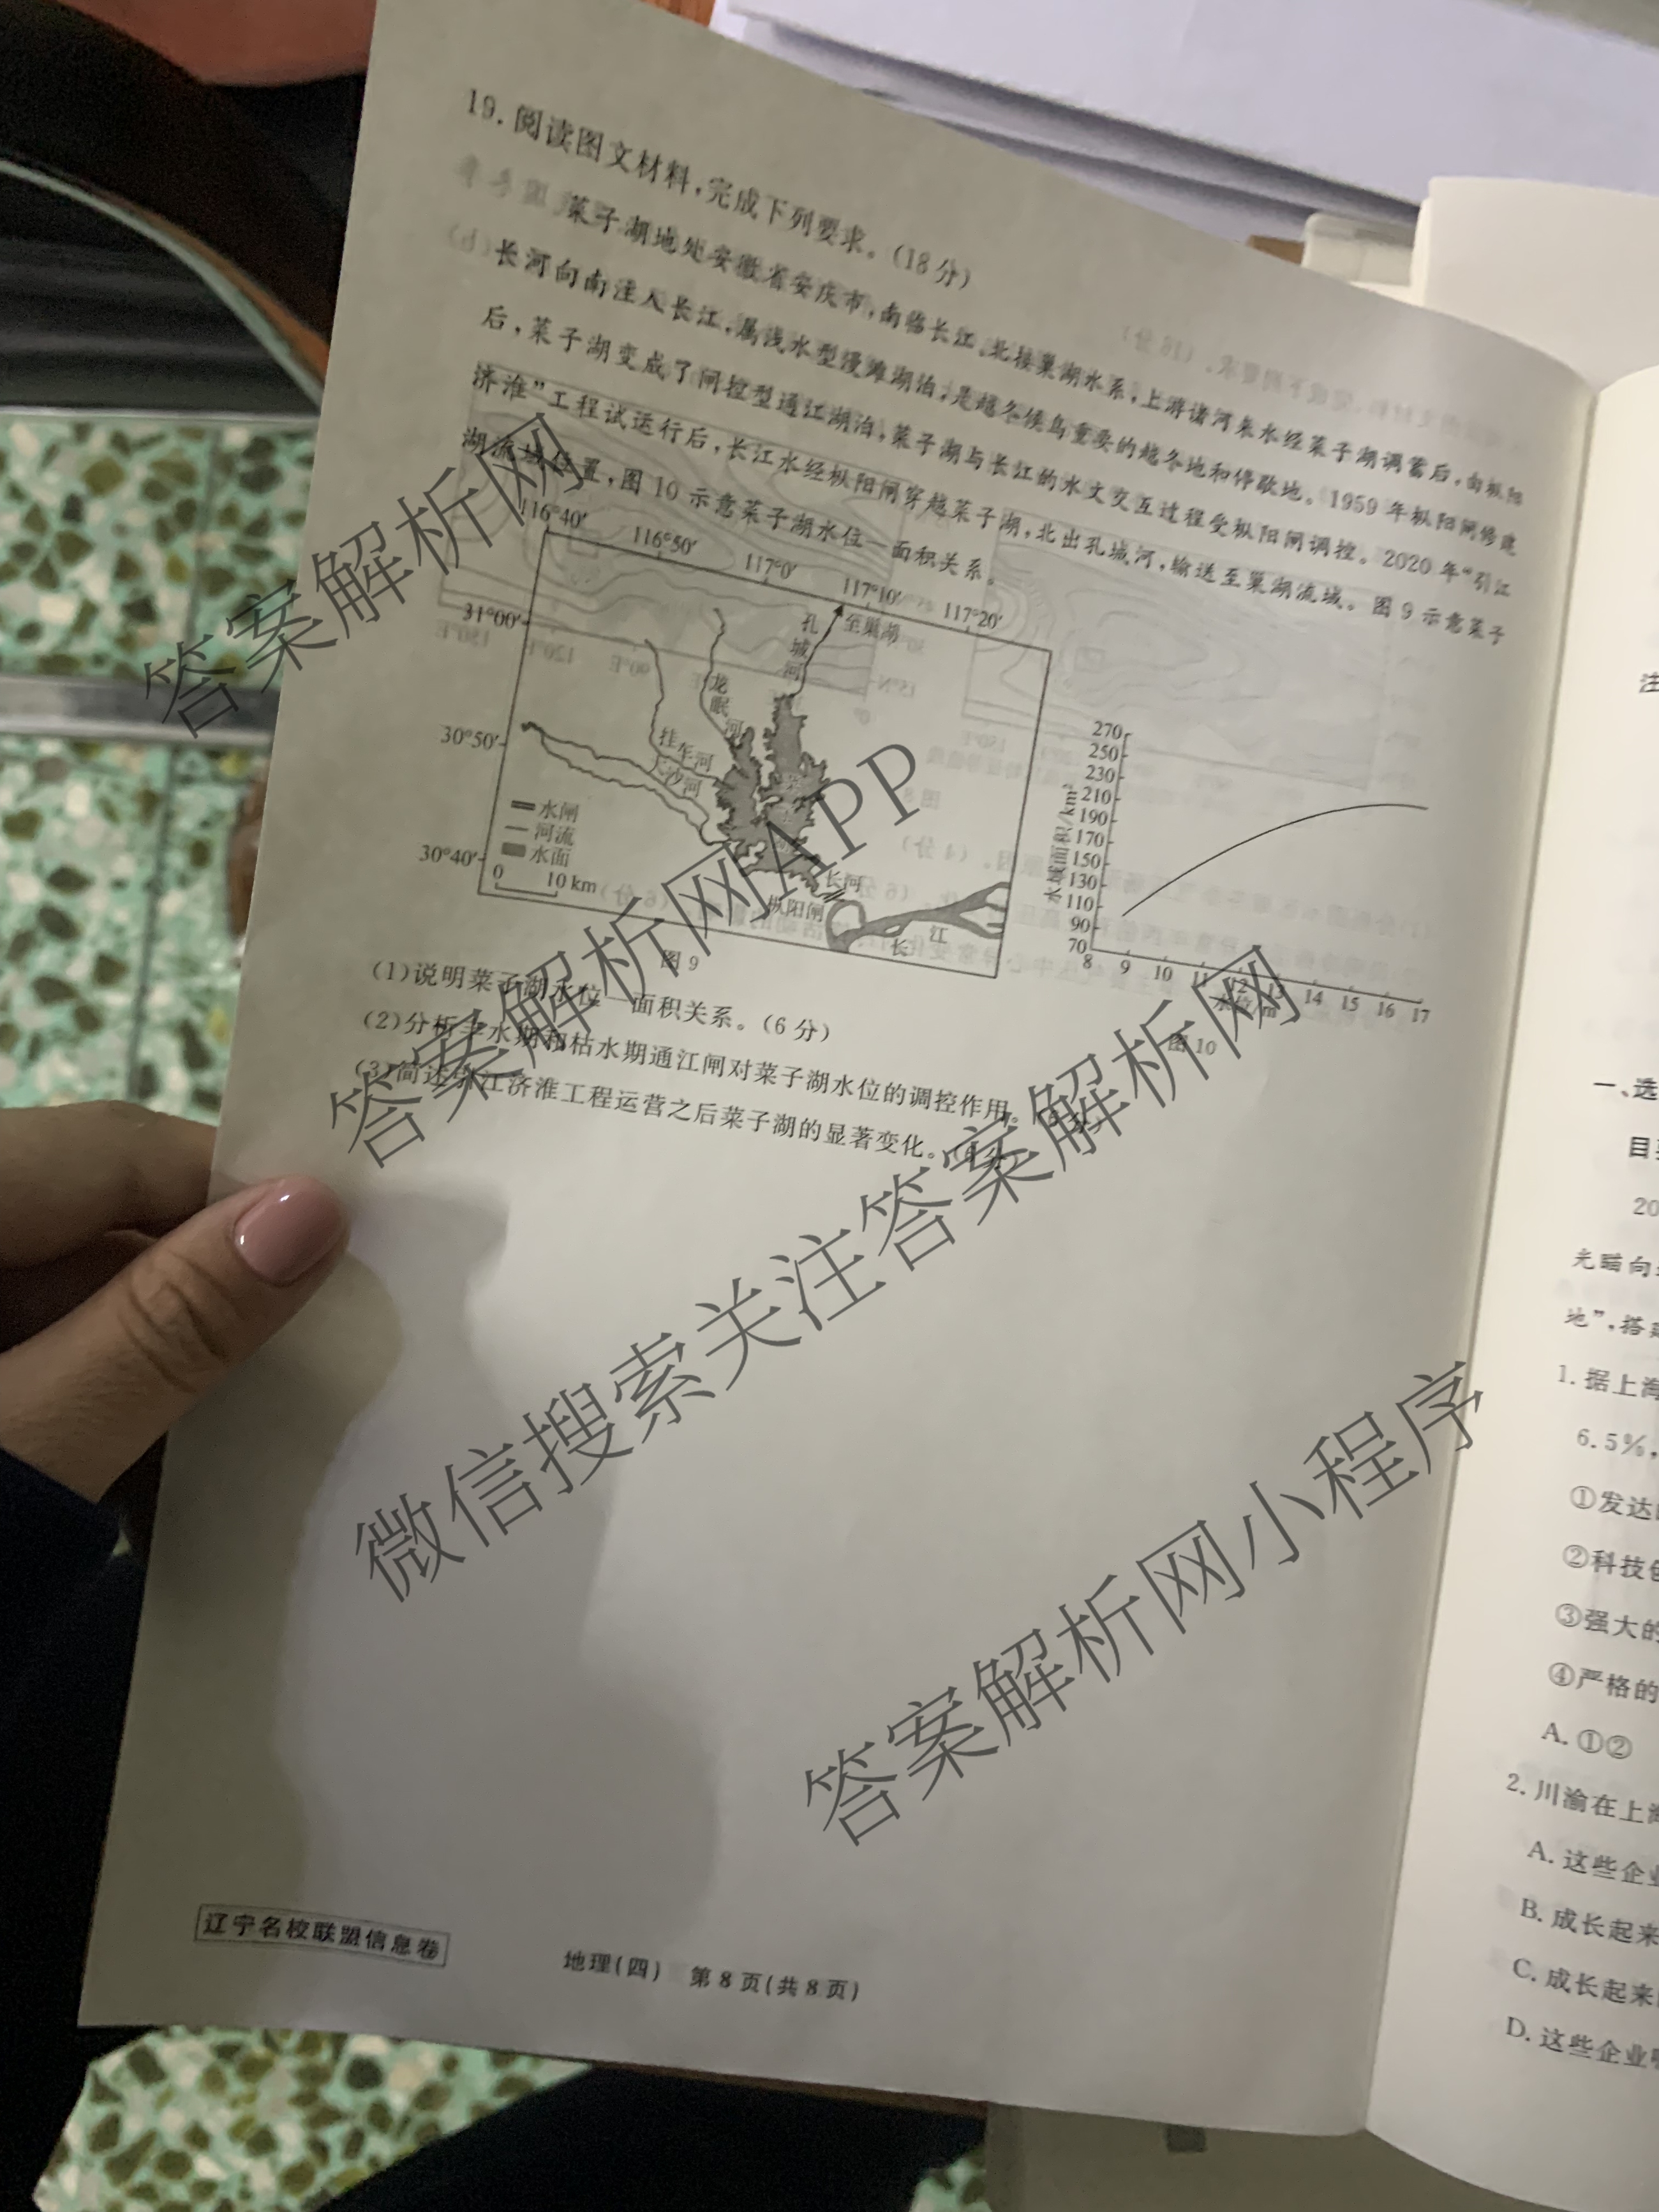 19. 阅读图文材料,完成下列要求。(18分)
菜子湖地处安徽省安庆市,南临长江、北接巢湖水系,上游诸河来水经菜子湖调蓄后,由枞阳
长河向南注入长江,属浅水型漫滩湖泊,是越冬候鸟重要的越冬地和停歇地。1959年枞阳闸修建
后,菜子湖变成了闸控型通江湖泊,菜子湖与长江的水文交互过程受枞阳闸调控。2020年“引江
济淮”工程试运行后,长江水经枞阳闸穿越菜子湖,北出孔城河,输送至巢湖流域。图9示意菜子
湖流域位置,图10示意菜子湖水位—面积关系。
116°40′
116°50′
117°0′
117°10′
117°20′
31°00′
30°50′
30°40′
孔城河
至巢湖
龙眠河
挂车河
大沙河
水闸
河流
水面
0 10 km
长河
枞阳闸
长江
图9
水域面积/km²
270
250
230
210
190
170
150
130
110
90
70
8 9 10 11 12 13 14 15 16 17
水位/m
图10
(1)说明菜子湖水位—面积关系。(6分)
(2)分析丰水期和枯水期通江闸对菜子湖水位的调控作用。
(3)简述引江济淮工程运营之后菜子湖的显著变化。
辽宁名校联盟信息卷
地理(四) 第8页(共8页)
答案解析网
答案解析网APP
微信搜索关注答案解析网
答案解析网小程序
注
一、选
目
20
光瞄向
地”,搭
1. 据上海
6.5%,
①发达
②科技
③强大的
④严格的
A. ①②
2. 川渝在上
A. 这些企业
B. 成长起来
C. 成长起来
D. 这些企业